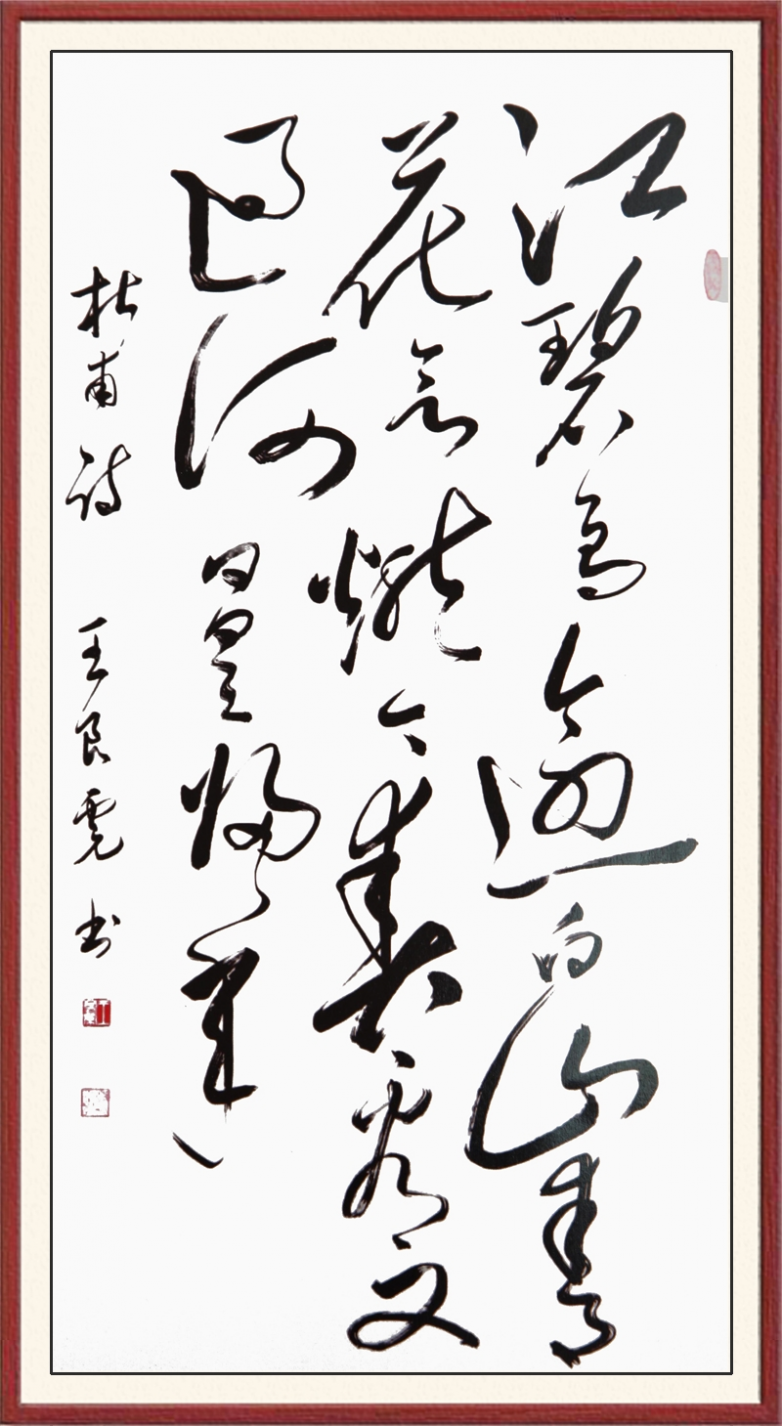 江碧鳥逾白山青
花欲燃今春看又
過何日是歸年
杜甫詩 王良虎 书